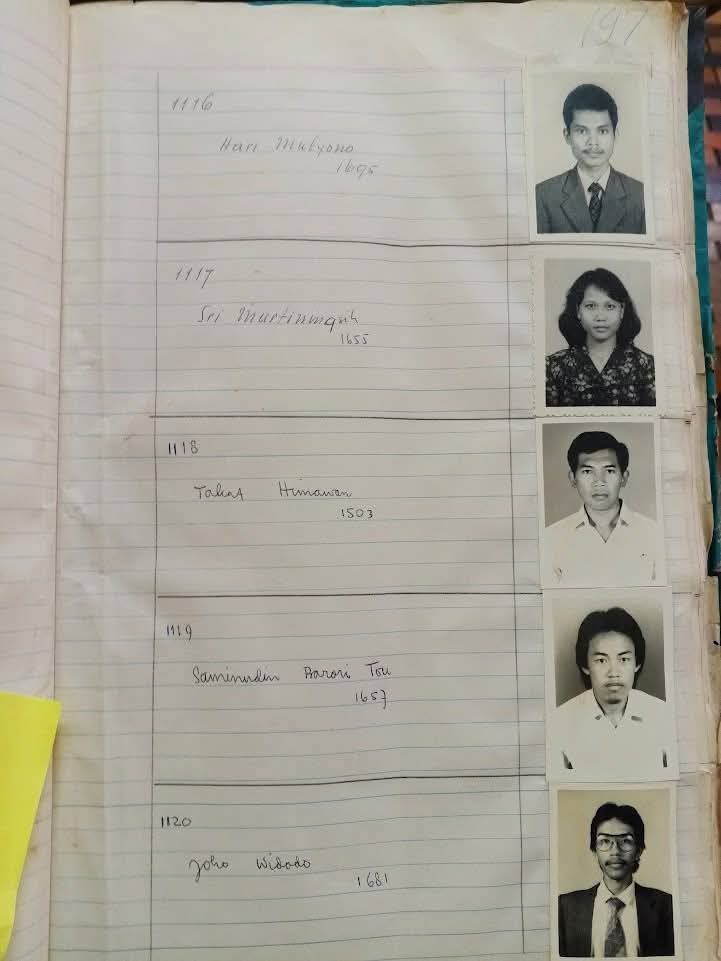 197
1116
Hari Mulyono
1695
1117
Sri Murtiningsih
1655
1118
Takat Himawan
1503
1119
Saminudin Barori Tou
1657
1120
Joko Widodo
1681